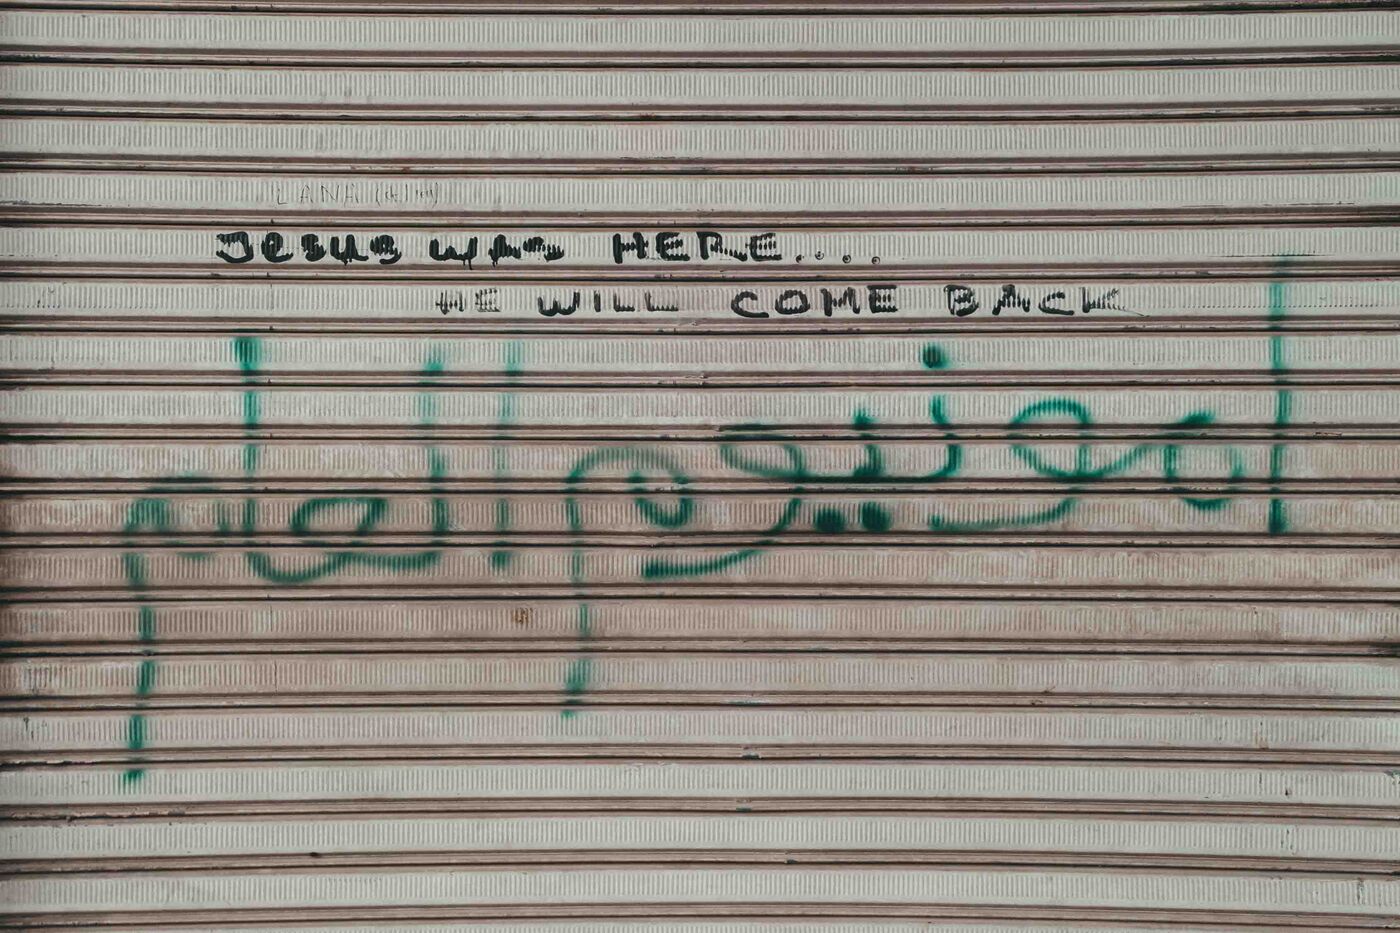 LANA
Jesus was HERE....
HE WILL COME BACK
امونيوم العلم